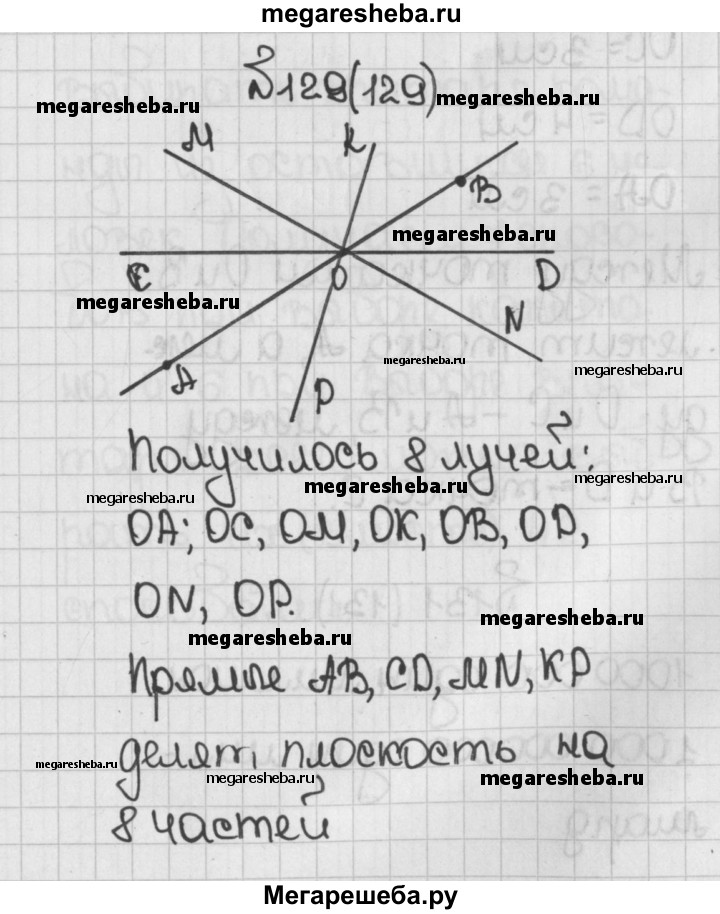 megaresheba.ru
№129(129)
megaresheba.ru
megaresheba.ru
M
K
B
megaresheba.ru
C
O
D
megaresheba.ru
N
megaresheba.ru
megaresheba.ru
A
P
Получилось 8 лучей:
megaresheba.ru
megaresheba.ru
megaresheba.ru
OA; OC, OM, OK, OB, OD,
ON, OP.
megaresheba.ru
megaresheba.ru
Прямые AB, CD, MN, KP
делят плоскость на
megaresheba.ru
megaresheba.ru
megaresheba.ru
8 частей
Мегарешеба.ру